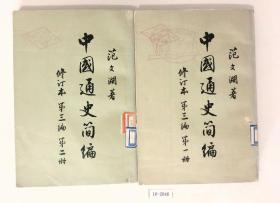 范文瀾著
中國通史简编
修订本 第三编 第二册
范文瀾著
中國通史简编
修订本 第三编 第一册
10-2046